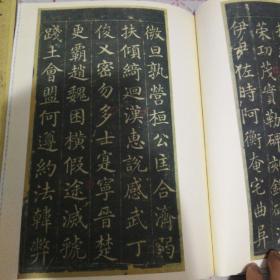 策功茂實勒碑刻
伊尹佐時阿衡奄宅曲阜
微旦孰營桓公匡合濟弱
扶傾綺迴漢惠說感武丁
俊乂密勿多士寔寧晉楚
更霸趙魏困橫假途滅虢
踐土會盟何遵約法韓弊